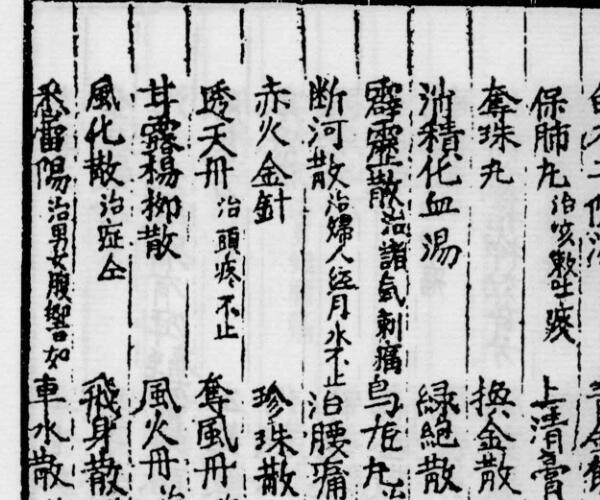 保肺丸治咳嗽吐痰 上清膏
奪珠丸 換金散
消積化血湯 綠絶散
霹靂散治諸氣刺痛 烏龙丸治
断河散治婦人経月水不止 治腰痛
赤火金針 珍珠散
透天丹治頭疼不止 奪風丹
甘露楊柳散 風火丹
風化散治症仝 飛身散
雷陽治男女腹響如 車水散